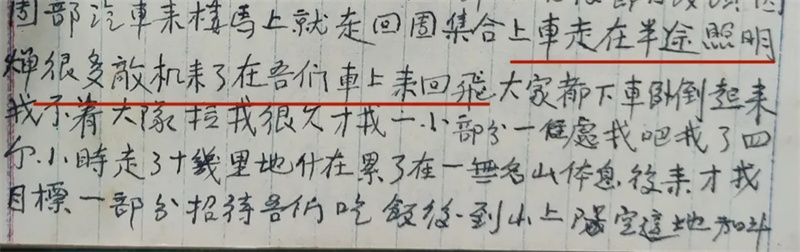 团部汽車来接馬上就走回團集合上車走在半途照明
弹很多敵机来了在吾们車上来回飛大家都下車卧倒起来
我不着大隊 我很久才我一小部分一個處我吧我了四
个小時走了十幾里地什在累了在一無名山体息後来才我
目標一部分招待吾们吃飯後到小上隊空這地